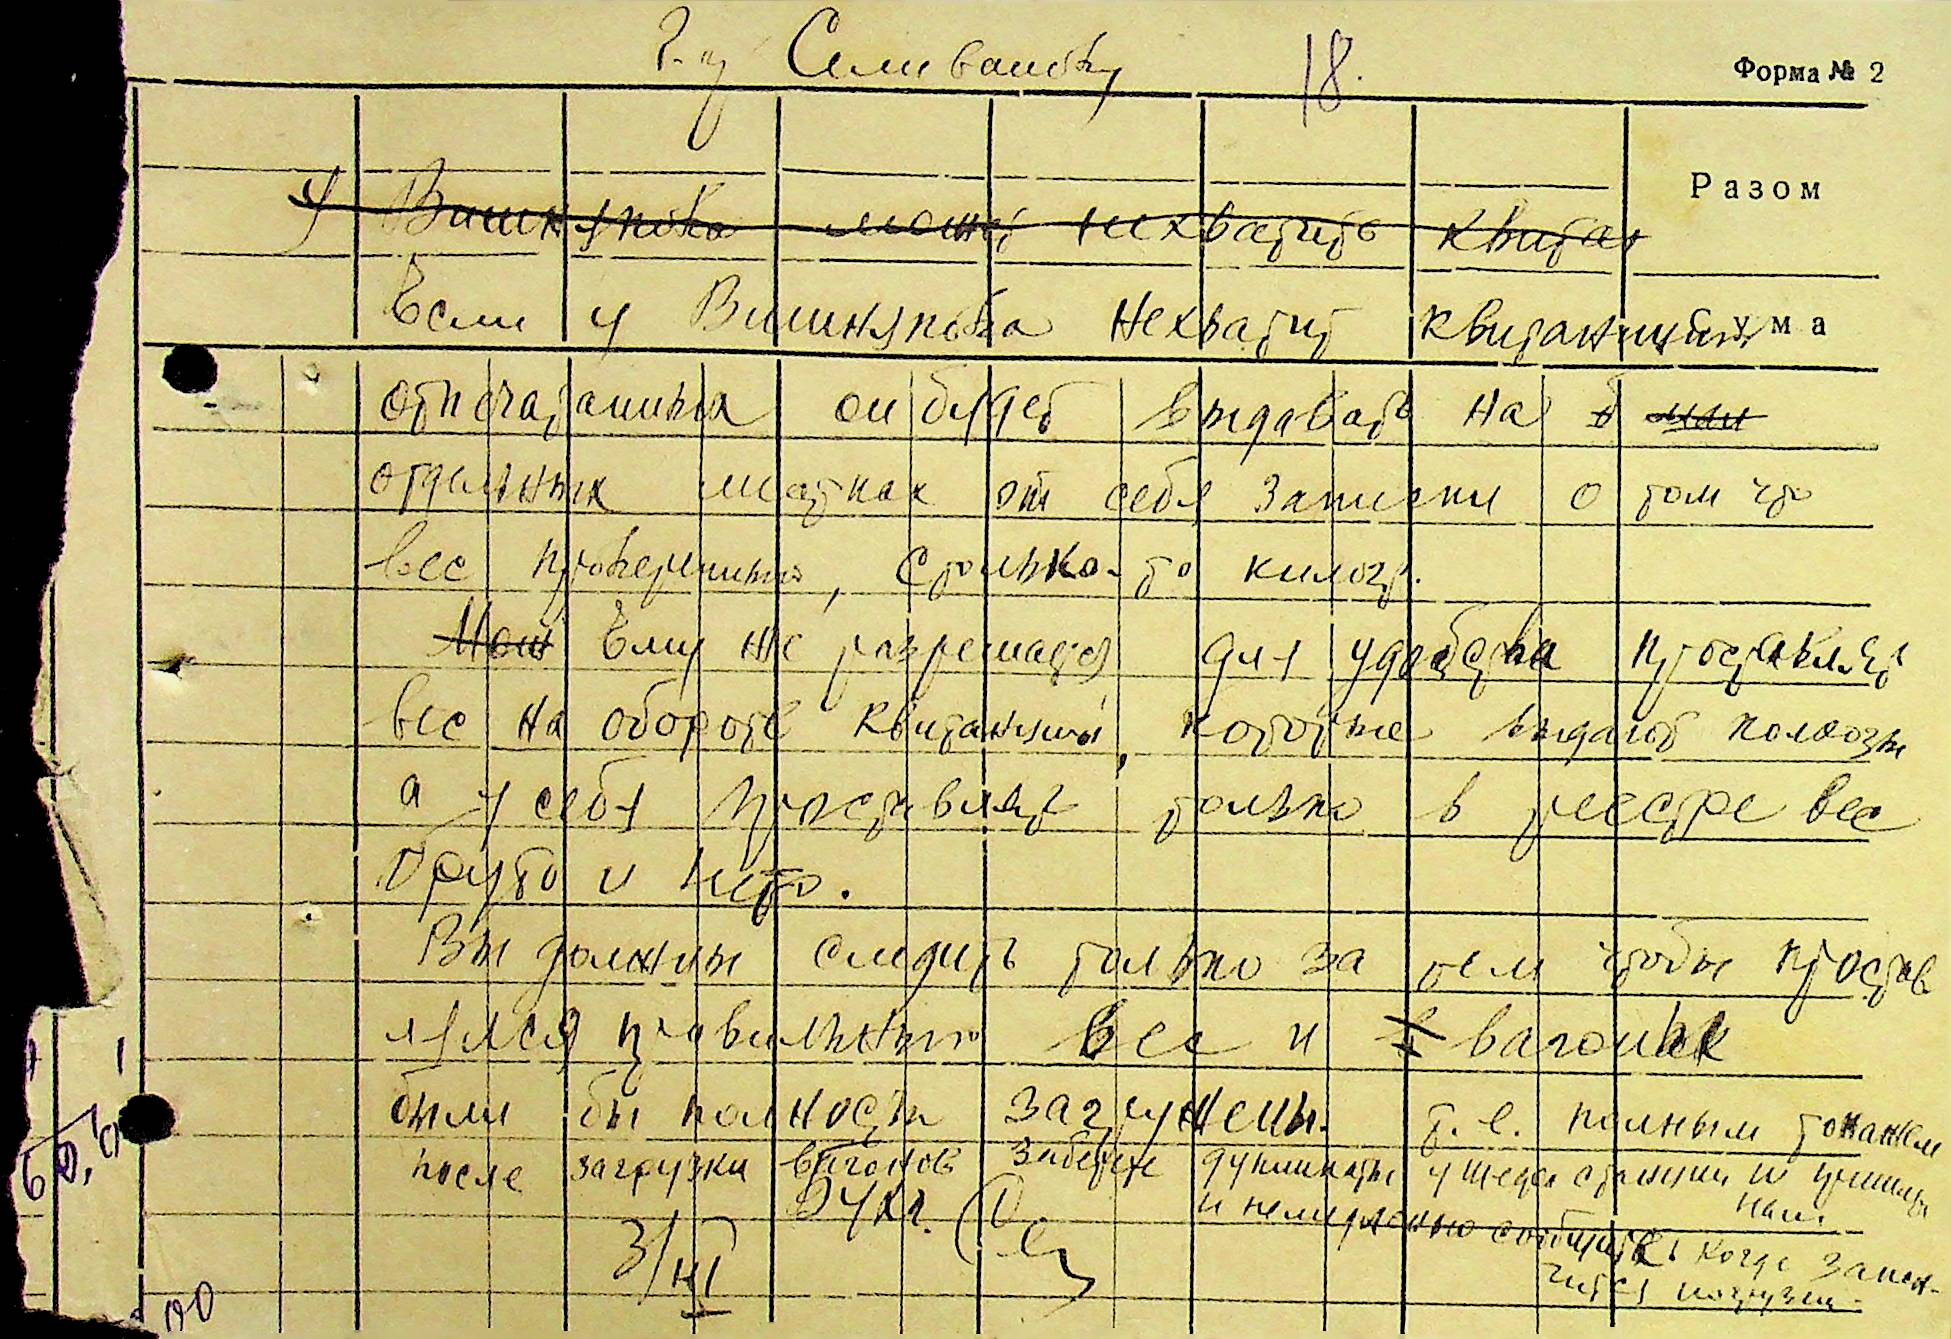 Г-ну Селиванову 18.
Форма № 2
Разом
У Вишнякова может нехватить квитан
Если у Вишнякова нехватит квитанций
Сума
отпечатанных он будет выдавать на
отдельных листках от себя записки о том что
вес проверенный, столько-то килогр.
Мож Ему же разрешается для удобства проставлять
вес на обороте квитанции, которые выдают колхозы
а у себя проставлять только в реестре вес
брутто и нетто.
Вы должны следить только за тем чтобы простав
лялся правильный вес и вагоны
были бы полность загружены. т.е. полным тонажем
после загрузки вагонов заберете дупликаты у шефа станции и
нам.
и немедленно сообщите когда закон-
чится погрузка.
3/III
50,0